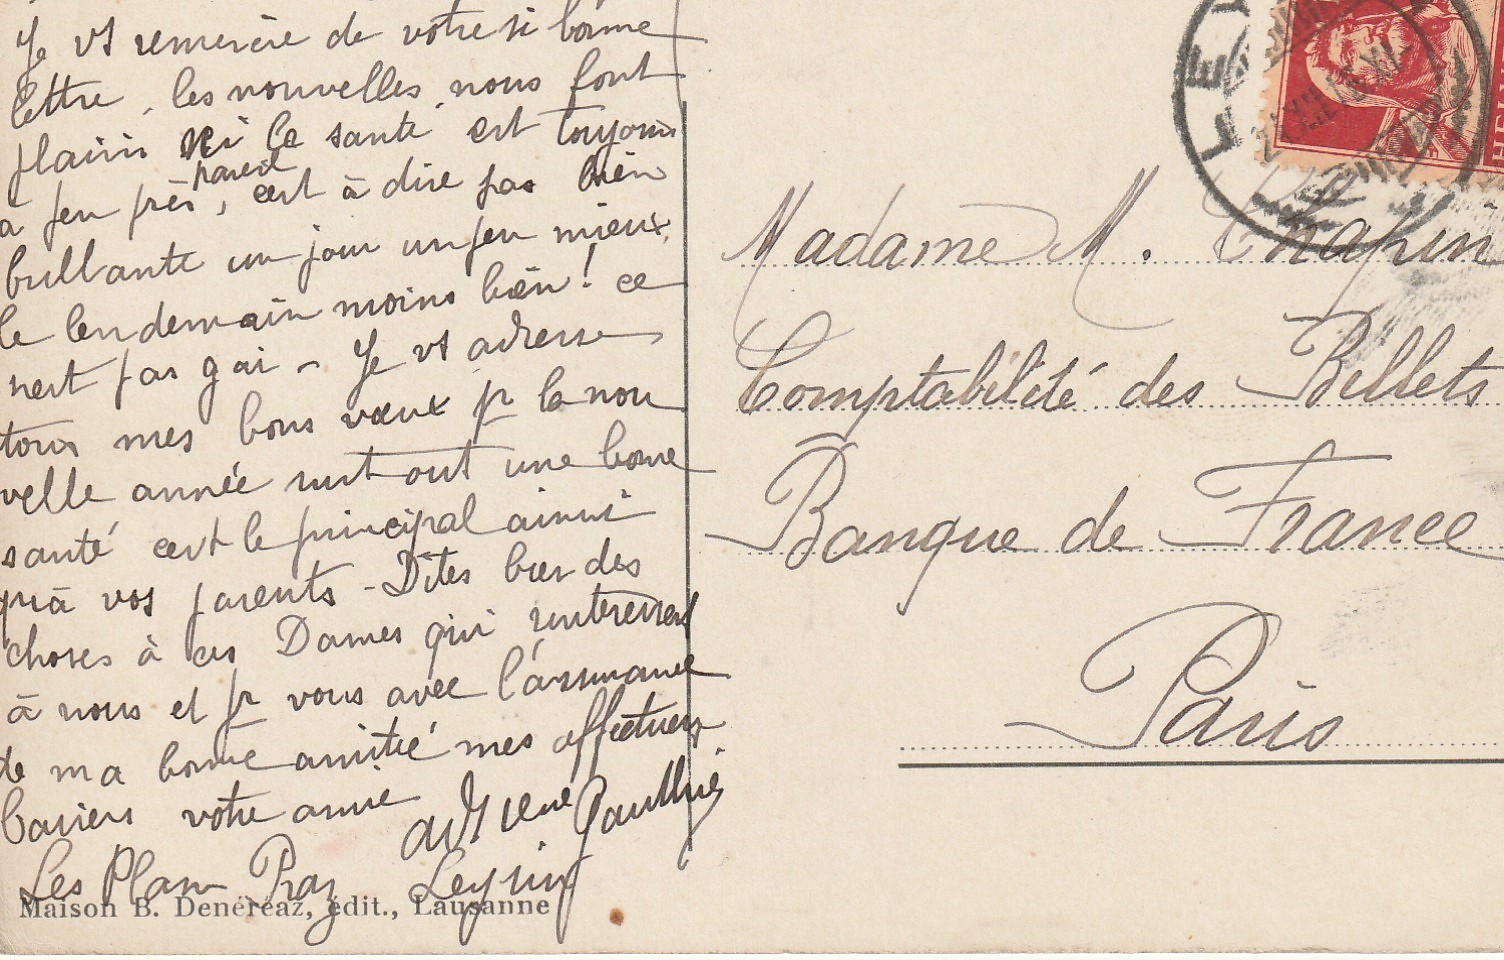 Je vs remercie de votre si bonne
lettre, les nouvelles nous font
plaisir ici la santé est toujours
à peu près pareil, c'est à dire pas bien
brillante un jour un peu mieux,
le lendemain moins bien! ce
n'est pas gai - Je vs adresse
tous mes bons vœux pr la nou
velle année surtout une bonne
santé c'est le principal ainsi
qu'à vos parents - Dites bien des
choses à ces Dames qui
à nous et pr vous avec l'assurance
de ma bonne amitié mes affectueux
baisers votre amie Gauthier
Les Plans Praz Leysin
Maison B. Denéréaz, édit., Lausanne
LEY
Madame M. Chapin
Comptabilité des Billets
Banque de France
Paris